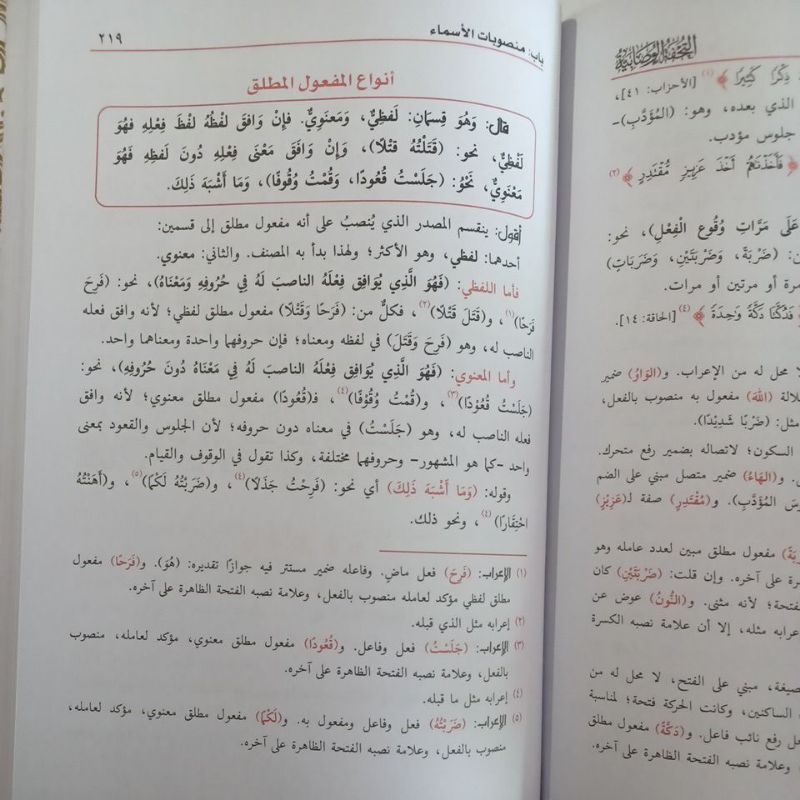 التحفة الوصابية
ذِكْرًا كَثِيرًا ﴾(١) [الأحزاب: ٤١]،
الذي بعده، وهو: (المُؤَدِّبِ)-
جلوس مؤدب.
فَأَخَذْنَاهُمْ أَخْذَ عَزِيزٍ مُّقْتَدِرٍ ﴾(٢)
عَلَى مَرَّاتِ وُقُوعِ الْفِعْلِ)، نحو:
(ضَرْبَةً، وَضَرْبَتَيْنِ، وَضَرَبَاتٍ)
مرة أو مرتين أو مرات.
فَدُكَّتَا دَكَّةً وَاحِدَةً ﴾(٤) [الحاقة: ١٤].
لا محل له من الإعراب. و(الوَاوُ) ضمير
(اللهَ) مفعول به منصوب بالفعل،
مثل: (ضَرْبًا شَدِيْدًا).
السكون؛ لاتصاله بضمير رفع متحرك.
و(الهَاءُ) ضمير متصل مبني على الضم
المُؤَدِّبِ). و(مُقْتَدِرٍ) صفة لـ(عَزِيْزٍ)
مفعول مطلق مبين لعدد عامله وهو
على آخره. وإن قلت: (ضَرْبَتَيْنِ) كان
لأنه مثنى. و(النُّونُ) عوض عن
مثله، إلا أن علامة نصبه الكسرة
مبني على الفتح، لا محل له من
الساكنين، وكانت الحركة فتحة؛ لمناسبة
رفع نائب فاعل. و(دَكَّةً) مفعول مطلق
وعلامة نصبه الفتحة الظاهرة على آخره.
باب: منصوبات الأسماء ٢١٩
أنواع المفعول المطلق
قال: وَهُوَ قِسمَانِ: لَفظِيٌّ، وَمَعنَوِيٌّ. فَإِنْ وَافَقَ لَفظُهُ لَفظَ فِعْلِهِ فَهُوَ
لَفْظِيٌّ، نحو: (قَتَلْتُهُ قَتْلًا)، وَإِنْ وَافَقَ مَعْنَى فِعْلِهِ دُونَ لَفظِهِ فَهُوَ
مَعْنَوِيٌّ، نَحْوُ: (جَلَسْتُ قُعُودًا، وَقُمْتُ وُقُوفًا)، وَمَا أَشْبَهَ ذَلِكَ.
أقول: ينقسم المصدر الذي يُنصبُ على أنه مفعول مطلق إلى قسمين:
أحدهما: لفظي، وهو الأكثر؛ ولهذا بدأ به المصنف. والثاني: معنوي.
فأما اللفظي: (فَهُوَ الَّذِي يُوَافِق فِعْلَهُ الناصبَ لَهُ فِي حُرُوفِهِ وَمَعْنَاهُ)، نحو: (فَرِحَ
فَرَحًا)(١)، و(قَتَلَ قَتْلًا)(٢)، فكلٌّ من: (فَرَحًا وَقَتْلًا) مفعول مطلق لفظي؛ لأنه وافق فعله
الناصب له، وهو (فَرِحَ وَقَتَلَ) في لفظه ومعناه؛ فإن حروفهما واحدة ومعناهما واحد.
وأما المعنوي: (فَهُوَ الَّذِي يُوَافِق فِعْلَهُ الناصبَ لَهُ فِي مَعْنَاهُ دُونَ حُرُوفِهِ)، نحو:
(جَلَسْتُ قُعُوْدًا)(٣)، و(قُمْتُ وُقُوْفًا)(٤)، فـ(قُعُودًا) مفعول مطلق معنوي؛ لأنه وافق
فعله الناصب له، وهو (جَلَسْتُ) في معناه دون حروفه؛ لأن الجلوس والقعود بمعنى
واحد -كما هو المشهور- وحروفهما مختلفة، وكذا تقول في الوقوف والقيام.
وقوله: (وَمَا أَشْبَهَ ذَلِكَ) أي نحو: (فَرِحْتُ جَذَلًا)(٤)، و(ضَرَبْتُهُ لَكْمًا)(٥)، و(أَهَنْتُهُ
احْتِقَارًا)(٤)، ونحو ذلك.
(١) الإعراب: (فَرِحَ) فعل ماضٍ. وفاعله ضمير مستتر فيه جوازًا تقديره: (هُوَ). و(فَرَحًا) مفعول
مطلق لفظي مؤكد لعامله منصوب بالفعل، وعلامة نصبه الفتحة الظاهرة على آخره.
(٢) إعرابه مثل الذي قبله.
(٣) الإعراب: (جَلَسْتُ) فعل وفاعل. و(قُعُودًا) مفعول مطلق معنوي، مؤكد لعامله، منصوب
بالفعل، وعلامة نصبه الفتحة الظاهرة على آخره.
(٤) إعرابه مثل ما قبله.
(٥) الإعراب: (ضَرَبْتُهُ) فعل وفاعل ومفعول به. و(لَكْمًا) مفعول مطلق معنوي، مؤكد لعامله،
منصوب بالفعل، وعلامة نصبه الفتحة الظاهرة على آخره.